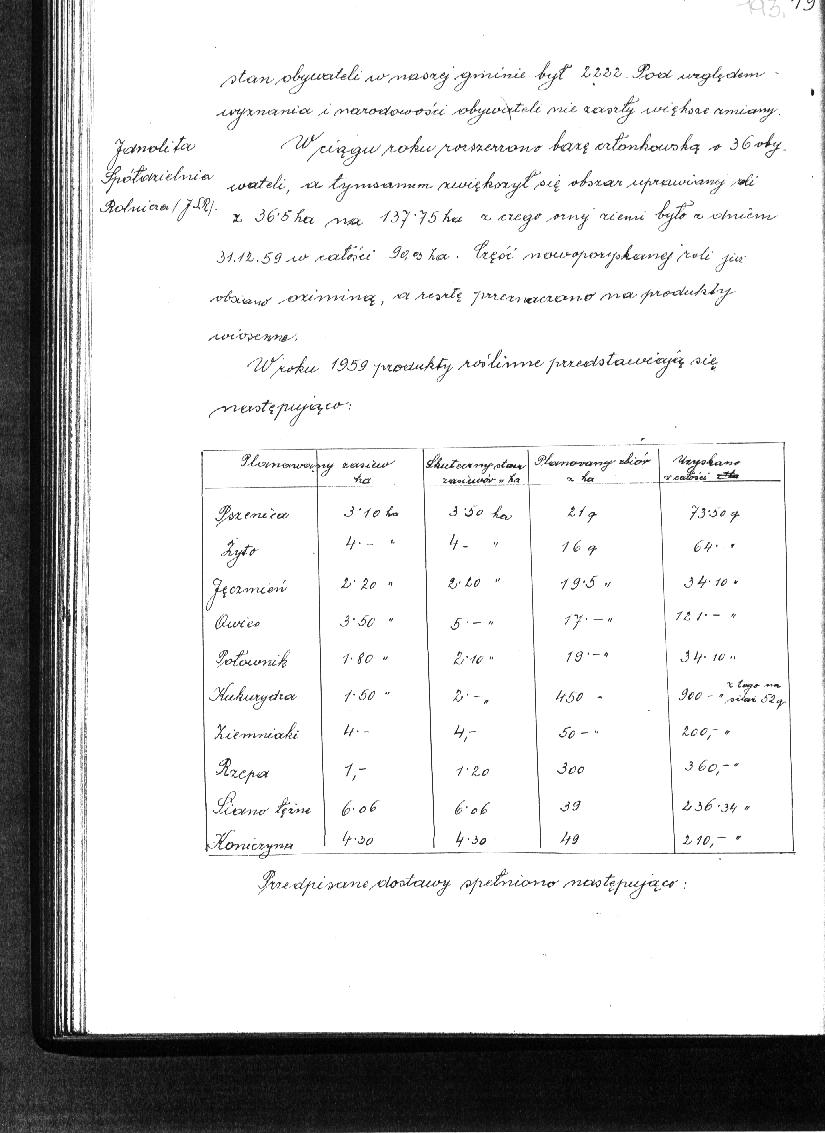 193. 19
stan obywateli w naszej gminie był 2222. Pod względem
wyznania i narodowości obywateli nie zaszły większe zmiany.
Jednolita
Spółdzielnia
Rolnicza /JSR/.
W ciągu roku rozszerzono bazę członkowską o 36 oby-
wateli, a tymsamem zwiększył się obszar uprawianej roli
z 36·5 ha na 137·75 ha z czego ornej ziemi było z dniem
31.12.59 w całości 90,03 ha. Część nowopozyskanej roli już
obsiano oziminą, a resztę przeznaczono na produkty
wiosenne.
W roku 1959 produkty roślinne przedstawiają się
następująco:
Planowany zasiew ha Skuteczny stan zasiewów w ha Planovany zbiór z ha Uzyskano w całości
Pszenica 3·10 ha 3·50 ha 21 q 73·50 q
Żyto 4·– " 4– " 16 q 64· "
Jęczmień 2·20 " 2·20 " 19·5 " 34·10 "
Owies 3·50 " 5·– " 17·– " 121·– "
Połownik 1·80 " 2·10 " 19·– " 34·10 "
Kukurydza 1·50 " 2·– " 450 " 900– " z tego na siew 52 q
Ziemniaki 4·– 4,– 50– " 200,– "
Rzepa 1,– 1·20 300 360,– "
Siano łężne 6·06 6·06 39 236·34 "
Koniczyna 4·30 4·30 49 210,– "
Przedpisane dostawy spełniono następująco: